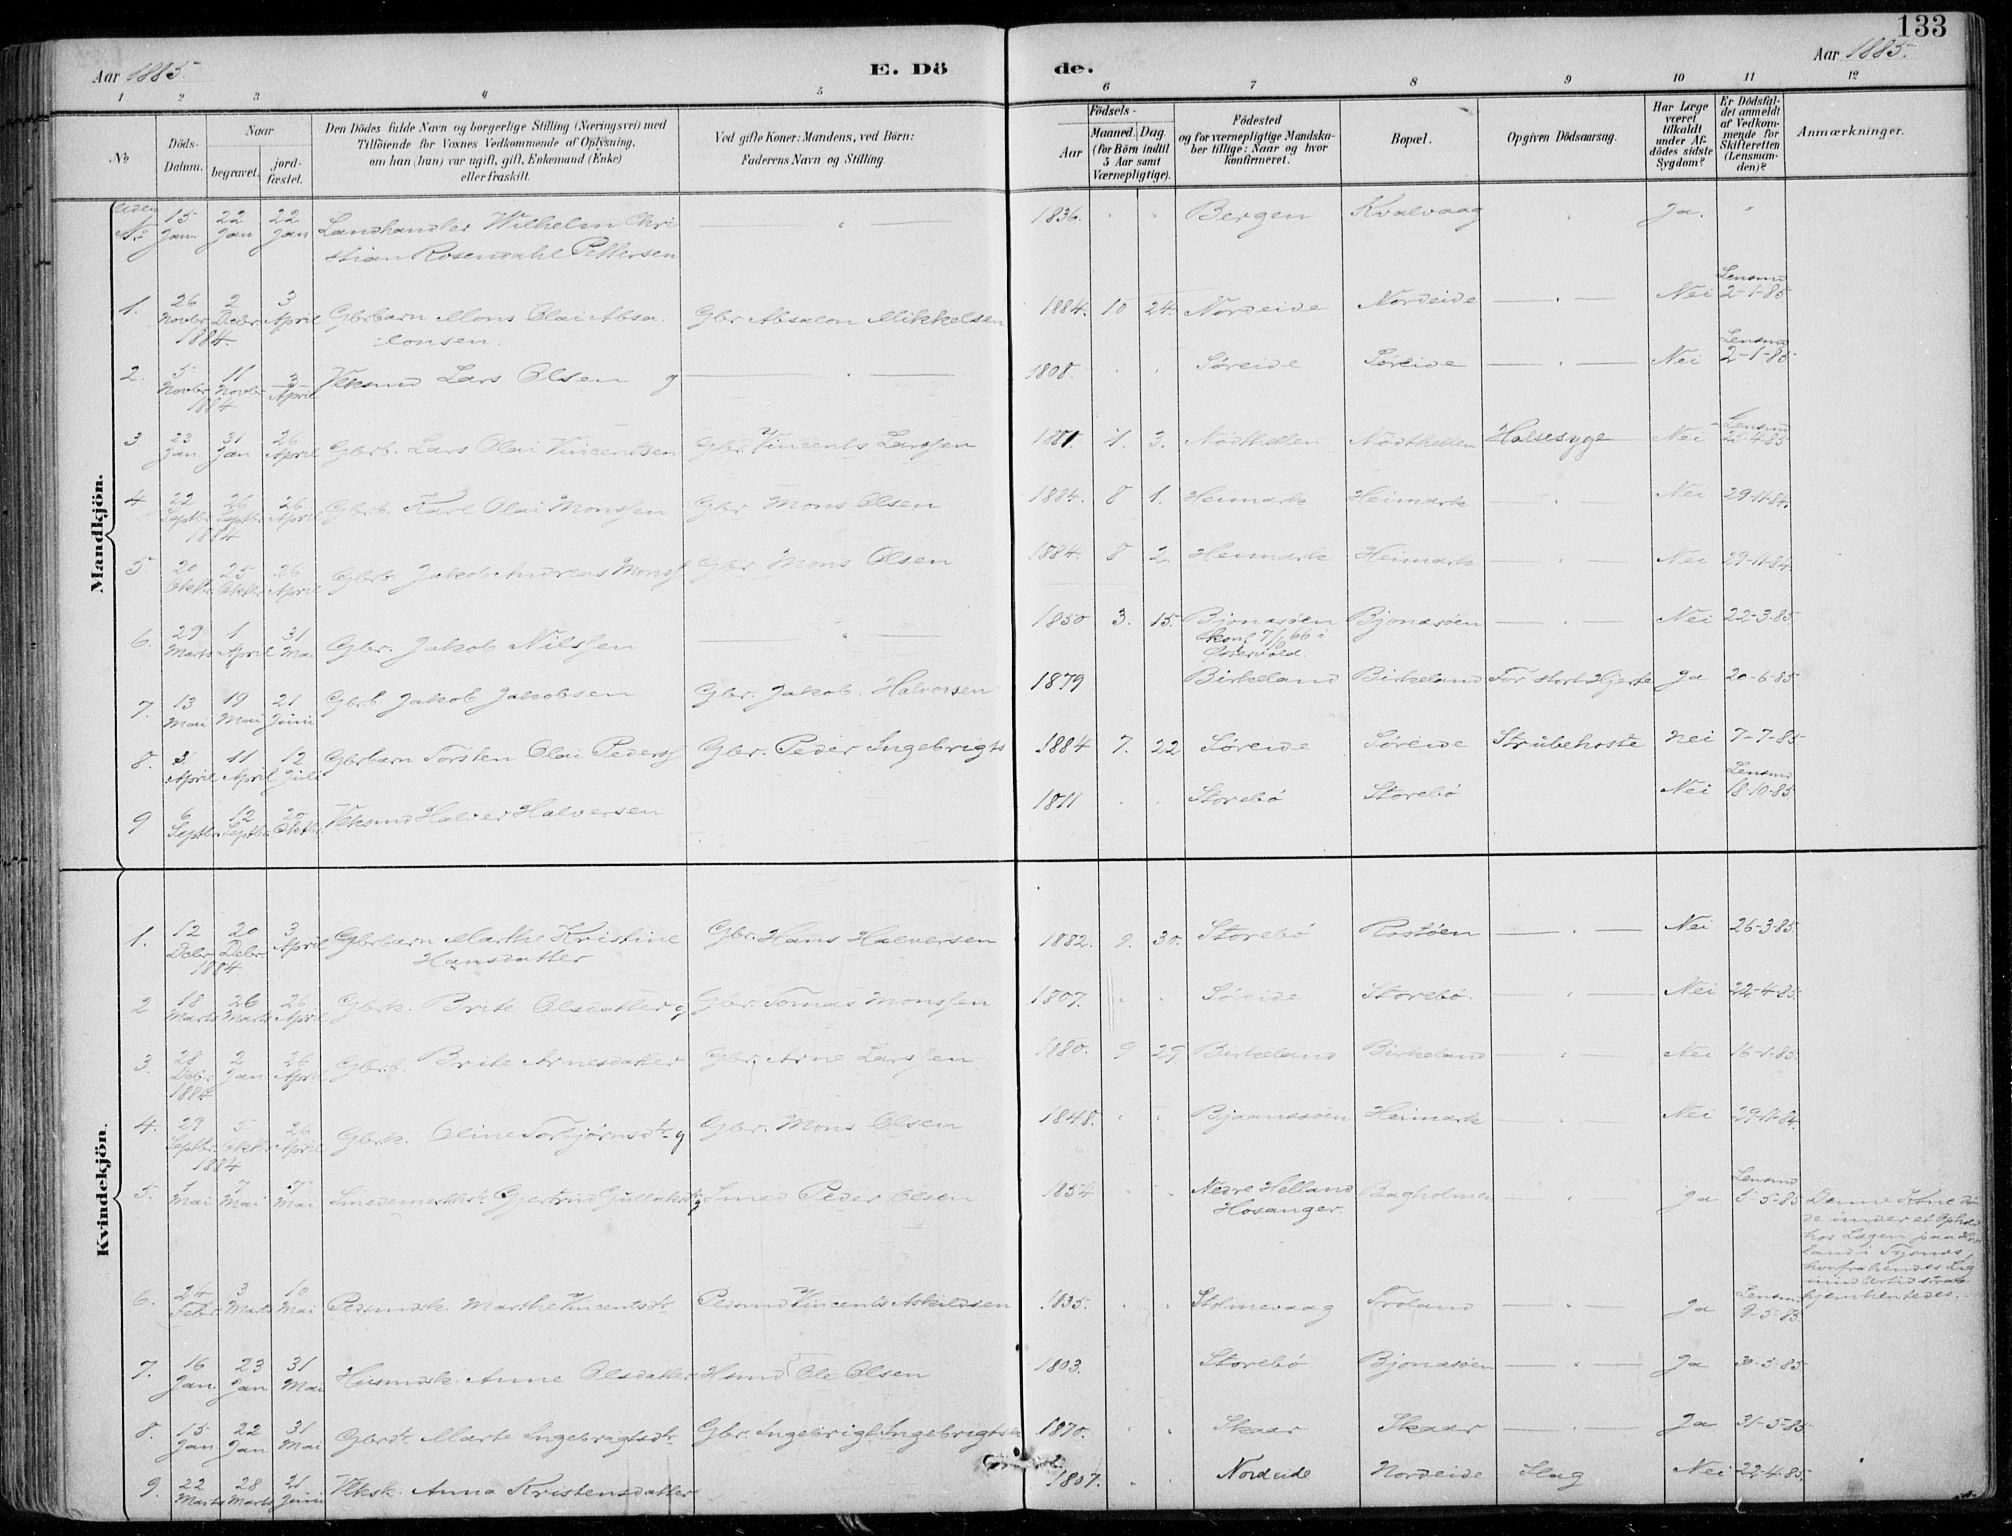 133
Aar 1885.
E. Döde.
Aar 1885.
1 2 3 4 5 6 7 8 9 10 11 12
No
Döds-Datum.
Naar
begravet.
jordfæstet.
Den Dödes fulde Navn og borgerlige Stilling (Næringsvei) med
Tilföiende for Voxnes Vedkommende af Oplysning,
om han (hun) var ugift, gift, Enkemand (Enke)
eller fraskilt.
Ved gifte Koner: Mandens, ved Börn:
Faderens Navn og Stilling.
Födsels-
Aar
Maaned. Dag.
(for Börn indtil
5 Aar samt
Værnepligtige).
Födested
og for værnepligtige Mandskaber tillige: Naar og hvor
konfirmeret.
Bopæl.
Opgiven Dödsaarsag.
Har Læge
været
tilkaldt
under Afdödes sidste
Sygdom?
Er Dödsfaldet anmeldt
af Vedkommende for
Skifteretten
(Lensmanden)?
Anmærkninger.
Mandkjön.
Uden No 15 Jan. 22 Jan 22 Jan Landhandler Wilhelm Christian Rosendahl Pettersen 1836. Bergen Kvalvaag Ja.
1. 26 Novbr 1884. 2 Debr. 3 April Gbrbarn Mons Olai Absalonsen. Gbr Absalon Mikkelsen 1884. 10 24. Nordeide Nordeide Nei Lensmd 2-1-85
2. 5 Novbr 1884 11 Novbr 3 April Vcksmd Lars Olsen g 1808. Søreide Søreide Nei Lensmd 2-1-85
3 23 Jan 31 Jan 26 April Gbrb. Lars Olai Vincentsen Gbr. Vincents Larssen 1881. 1. 3. Nödthellen Nödthellen Halsesyge Nei Lensmd 25-4-85
4 22 Septbr 1884 26 Septbr 26 April Gbrb. Karl Olai Monssen Gbr. Mons Olsen 1884. 8 1. Heimark Heimark Nei 29-11-84.
5. 20 Oktbr. 25 Oktbr 26 April Gbrb. Jakob Andreas Monss Gbr. Mons Olsen 1884. 8 2 Heimark Heimark Nei 29-11-84.
6. 29 Marts 1 April 31 Mai Gbr. Jakob Nilssen 1850 3. 15. Bjonasöen Konf. 7/10 66 i Østervold. Bjonasöen Nei 22-3-85
7. 13 Mai 19 Mai 21 Juni Gbrb Jakob Jakobsen Gbr. Jakob Halvorsen 1879 Birkeland Birkeland For stort Hjerte Ja 20-6-85
8. 3 April 11 April 12 Juli Gbrbarn Torsten Olai Peders Gbr. Peder Ingebrigts 1884 7. 22 Søreide Søreide Strubehoste Nei 7-7-85
9 6 Septbr. 12 Septbr. 20 Oktbr. Vcksmd Halver Halversen 1811 Storebö Storebö Nei Lensmd 18-10-85
Kvindekjön.
1. 12 Debr 1884 20 Debr 3 April Gbrbarn Marthe Kristine Hansdatter Gbr. Hans Halversen 1882. 9. 30. Storebö Rostöen Nei 26-3-85.
2 18 Marts 26 Marts 26 April Gbrk. Brite Olsdatter g Gbr Tomas Monssen 1807. Søreide Storebö. Nei 22-4-85.
3. 28 Debr 1884 2 Jan 26 April Gbrb. Brite Arnesdatter Gbr. Arne Larssen 1880. 9 29 Birkeland Birkeland Nei 16-1-85.
4. 29 Septbr. 1884 5 Oktbr 26 April Gbrk. Oline Torbjörnsdtr g Gbr. Mons Olsen 1848. Bjaanæsöen Heimark Nei 29-11-84.
5. 1 Mai 7 Mai 7 Mai Gjertrud Smed Peder Olsen 1854 Nedre Helland Hosanger. Bagholmen Ja Lensmd 5-5-85 Denne Kone döde under et Ophold hos Lægen paa i Tysnæs, hvorfra hendes Lig imidlertid strax hjemhentedes.
6. 24 Febr 3 Marts 10 Mai Marthe Vincentsdtr Vincents Askildsen 1835. Stolmevaag Troland Ja Lensmd 9-5-85
7. 16 Jan. 23 Jan 31 Mai Husmdsk. Anne Olsdatter Hsmd Ole Olsen 1803. Storebö Bjonæsöen Ja 30-5-85
8. 15 Jan 22 Jan 31 Mai Gbrdtr Marte Ingebrigtsdtr Gbr. Ingebrigt Ingebrigtsen 1870. Skaar Skaar Ja 31-5-85
9. 22 Marts 28 Marts 21 Juni Vcksk. Anna Kristensdatter 1807. Nordeide Nordeide Slag Nei 22-4-85.